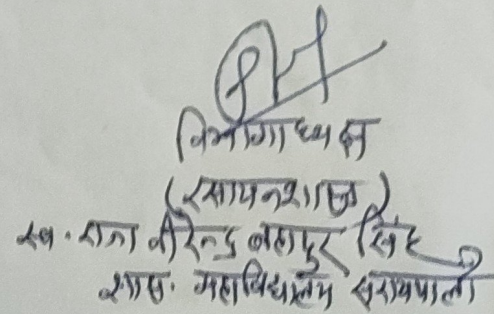 विभागाध्यक्ष
(रसायनशास्त्र)
स्व. राजा वीरेन्द्र बहादुर सिंह
शास. महाविद्यालय सरायपाली